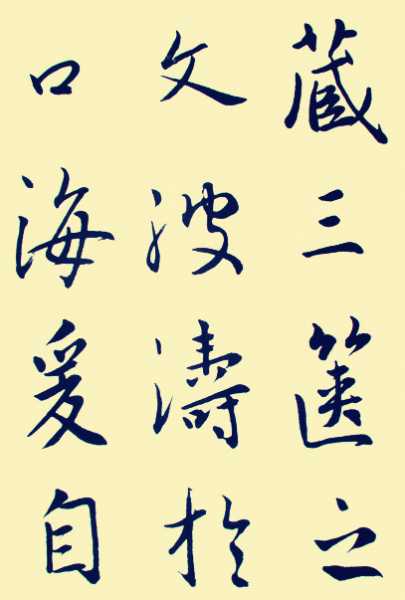 藏三箧之
文波濤於
口海爰自